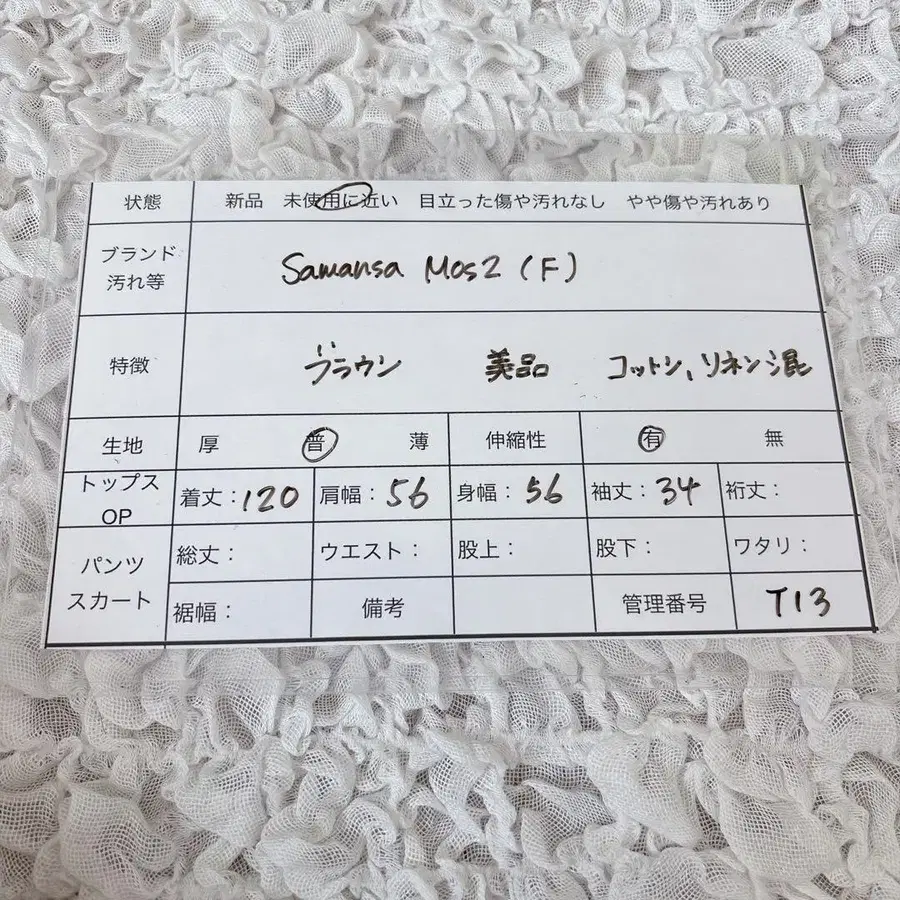 状態 新品 未使用に近い 目立った傷や汚れなし やや傷や汚れあり
ブランド
汚れ等
Samansa Mos2 (F)
特徴 ブラウン 美品 コットン、リネン混
生地 厚 普 薄 伸縮性 有 無
トップス
OP
着丈：120 肩幅：56 身幅：56 袖丈：34 裄丈：
パンツ
スカート
総丈： ウエスト： 股上： 股下： ワタリ：
裾幅： 備考 管理番号 T13